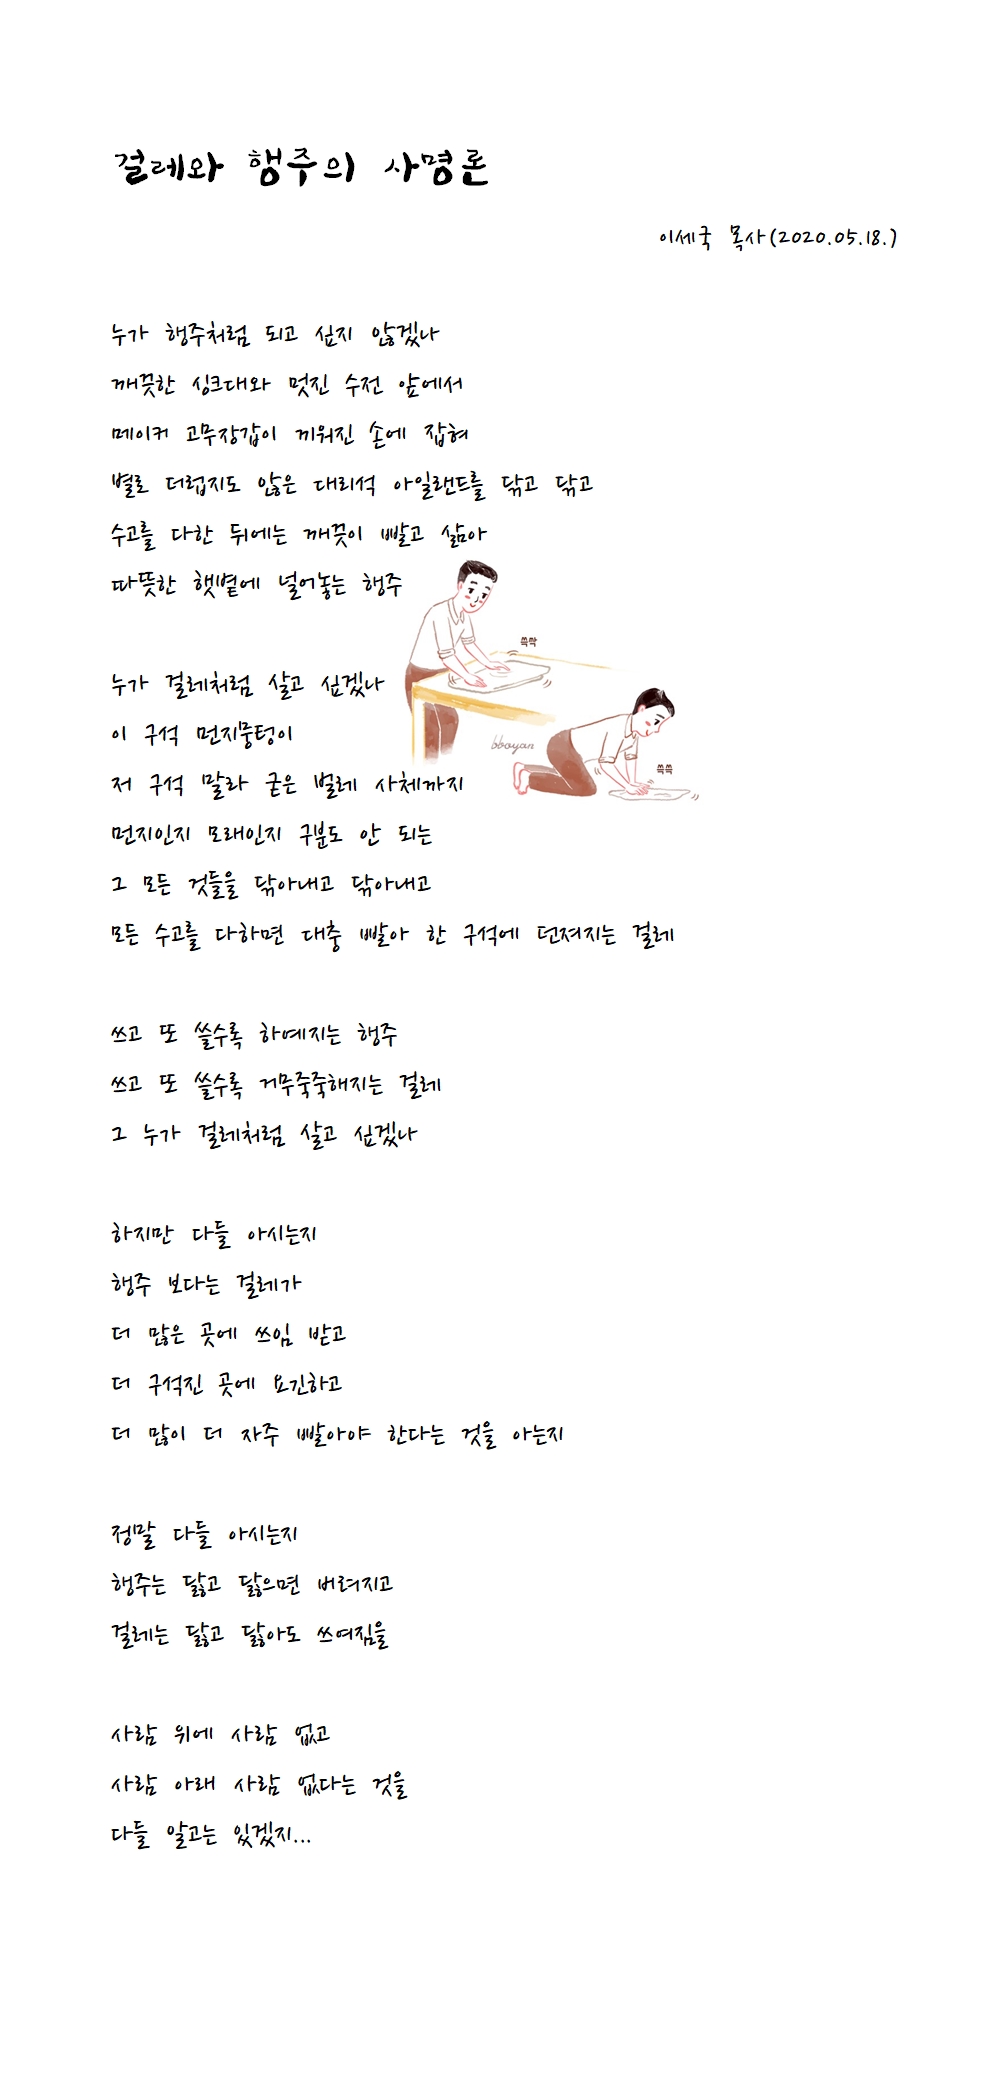 걸레와 행주의 사명론
이세국 목사(2020.05.18.)
누가 행주처럼 되고 싶지 않겠나
깨끗한 싱크대와 멋진 수전 앞에서
메이커 고무장갑이 끼워진 손에 잡혀
별로 더럽지도 않은 대리석 아일랜드를 닦고 닦고
수고를 다한 뒤에는 깨끗이 빨고 삶아
따뜻한 햇볕에 널어놓는 행주
쓱싹
누가 걸레처럼 살고 싶겠나
이 구석 먼지뭉텅이
bboyan
저 구석 말라 굳은 벌레 사체까지
쓱쓱
먼지인지 모래인지 구분도 안 되는
그 모든 것들을 닦아내고 닦아내고
모든 수고를 다하면 대충 빨아 한 구석에 던져지는 걸레
쓰고 또 쓸수록 하예지는 행주
쓰고 또 쓸수록 거무죽죽해지는 걸레
그 누가 걸레처럼 살고 싶겠나
하지만 다들 아시는지
행주 보다는 걸레가
더 많은 곳에 쓰임 받고
더 구석진 곳에 요긴하고
더 많이 더 자주 빨아야 한다는 것을 아는지
정말 다들 아시는지
행주는 닳고 닳으면 버려지고
걸레는 닳고 닳아도 쓰여짐을
사람 위에 사람 없고
사람 아래 사람 없다는 것을
다들 알고는 있겠지...